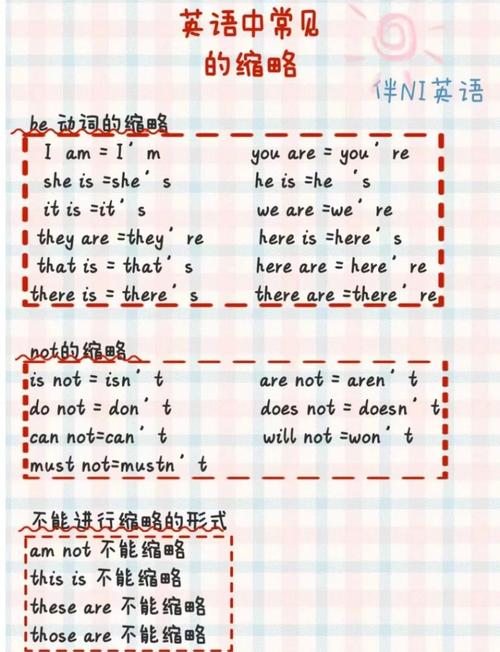 英语中常见
的缩略
伴NI英语
be 动词的缩略
I am = I' m you are = you' re
she is =she' s he is =he 's
it is =it' s we are =we' re
they are =they' re here is =here' s
that is = that' s here are = here' re
there is = there' s there are =there' re
not的缩略
is not = isn' t are not = aren' t
do not = don' t does not = doesn' t
can not=can' t will not =won' t
must not=mustn' t
不能进行缩略的形式
am not 不能缩略
this is 不能缩略
these are 不能缩略
those are 不能缩略